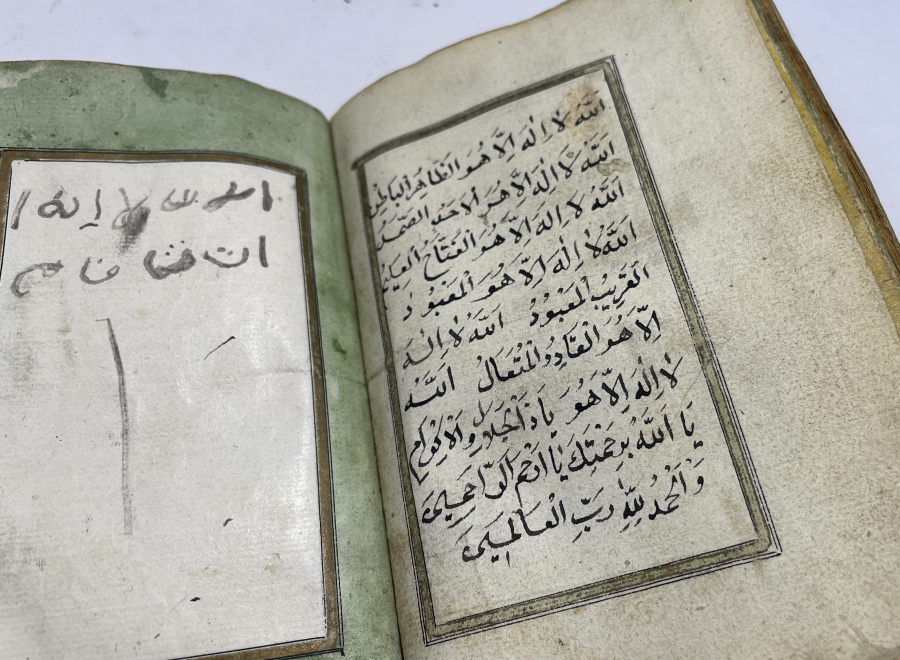 الله لا اله الا هو الظاهر الباطن
الله لا اله الا هو الاحد الصمد
الله لا اله الا هو الفتاح العليم
الله لا اله الا هو المعبود
القريب المعبود الله لا اله
الا هو القادر المتعال الله
لا اله الا هو يا ذا الجلال والاكرام
يا الله برحمتك يا ارحم الراحمين
والحمد لله رب العالمين
لا إله
ان